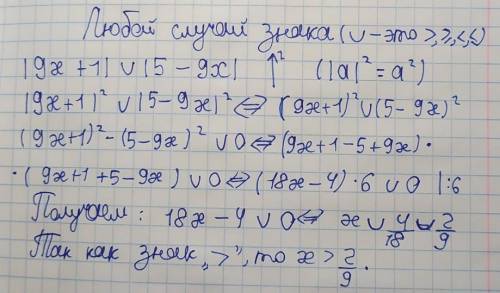 Любой случай знака (∨ - это >, ≥, <, ≤)
|9x + 1| ∨ |5 - 9x| ↑² (|a|² = a²)
|9x+1|² ∨ |5 - 9x|² ⇔ (9x+1)² ∨ (5 - 9x)²
(9x+1)² - (5-9x)² ∨ 0 ⇔ (9x+1-5+9x) ·
· (9x+1+5-9x) ∨ 0 ⇔ (18x-4) · 6 ∨ 0 |:6
Получаем: 18x - 4 ∨ 0 ⇔ x ∨ 4/18 ∨ 2/9
Так как знак „>”, то x > 2/9.